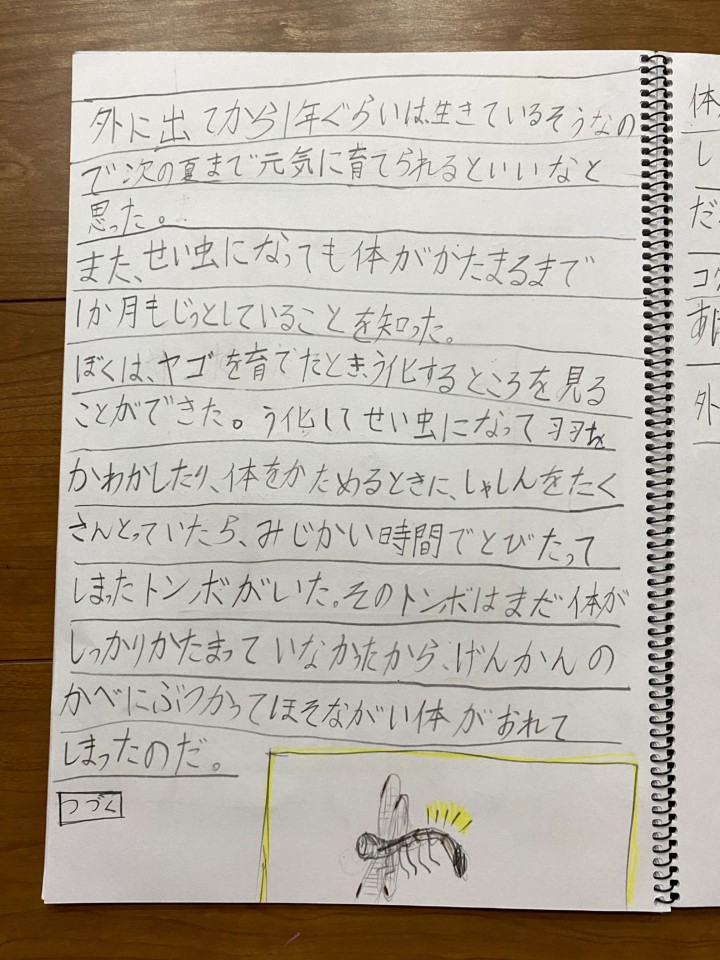 外に出てから1年ぐらいは、生きているそうなの
で次の夏まで元気に育てられるといいなと
思った。
また、せい虫になっても体がかたまるまで
1か月もじっとしていることを知った。
ぼくは、ヤゴを育てたとき、う化するところを見る
ことができた。う化してせい虫になって羽を
かわかしたり、体をかためるときに、しゃしんをたく
さんとっていたら、みじかい時間でとびたって
しまったトンボがいた。そのトンボはまだ体が
しっかりかたまっていなかったから、げんかんの
かべにぶつかってほそながい体がおれて
しまったのだ。
つづく
体
し
だ
コ
あ
外